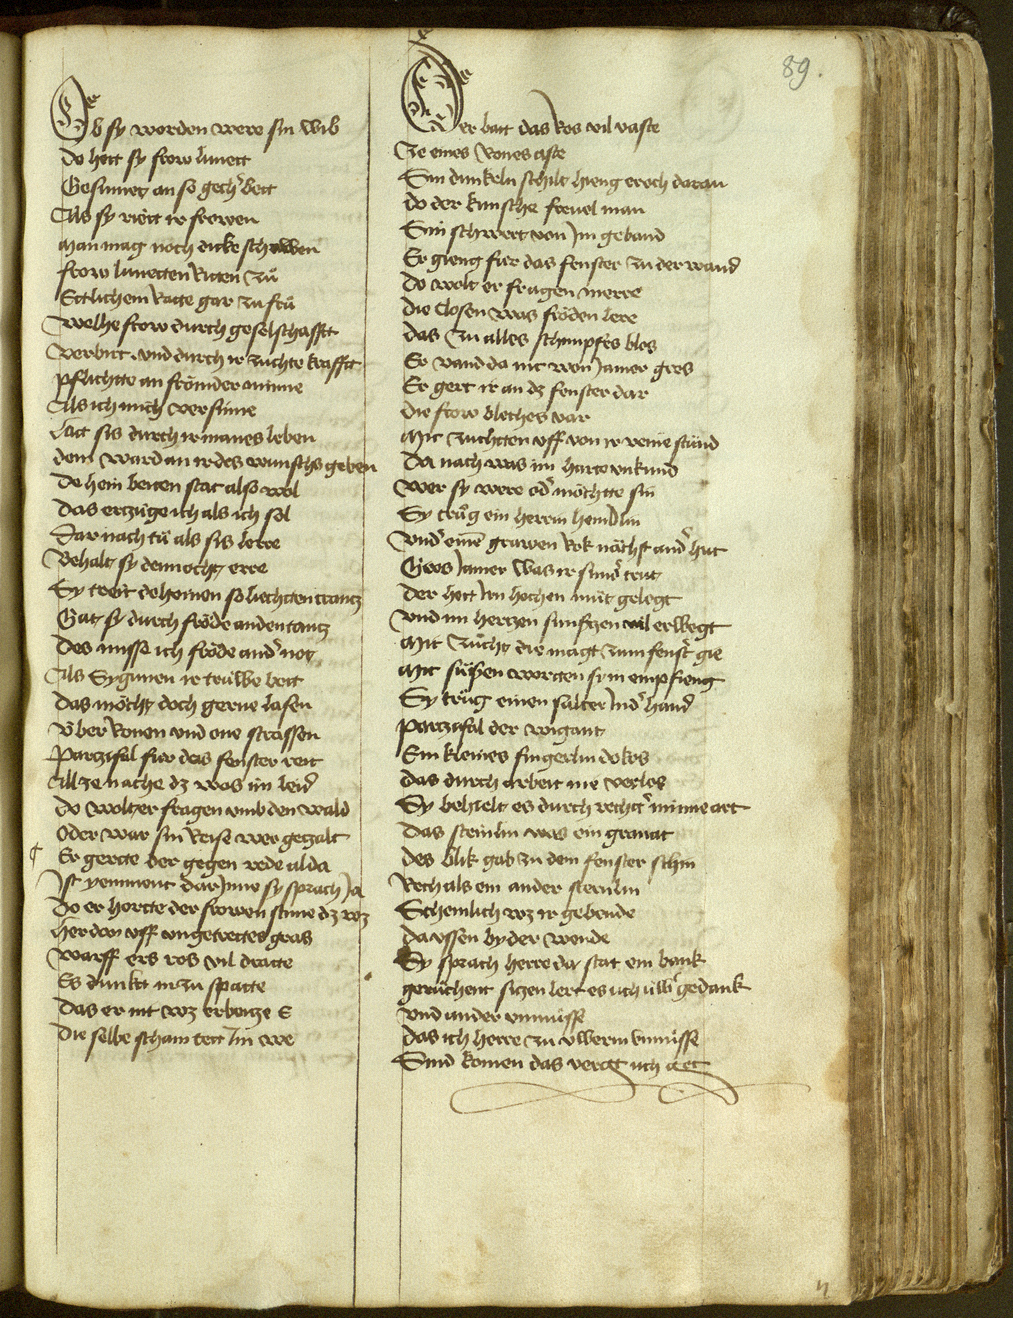 89.
Ob sy worden were sin wib
Do hett sy frow lunett
Gesumet an so gecher bett
Als sy riett ir frowen
Man mag noch dicke schowen
frow lunetten Ritten zů
Ettlichem Ratte gar zu frů
Welhe frow durch geselschafft
Verbirt vnd durch ir zuchte krafft
Pflichtte an frömder minne
Als ich mich versinne
Latt sis durch ir manes leben
dem ward an ir des wunschs geben
De hein beiten stat also wol
Das erzüge ich als ich sol
Dar nach tů als sis lerre
Behalt sy dennocht erre
Sy treit dehainen so liechtten crantz
Gat sy durch fröde an den tantz
Des misse ich fröde ander not
Als Sygunen ir trüwe bott
Das möcht doch gerne lasen
Vber Ronen vnd one strassen
Parzifal fur das fenster reit
All ze nache dz was im leid
Do wolt er fragen vmb den wald
Oder war sin Reise wer gezalt
Er gertte der gegen rede alda
Ist yemment dar Inne sy sprach Ja
Do er hortte der frowen stime dz wz
Her dan vff vngetrettes gras
Warff ers ros vil dratte
Es dunkt in zu spatte
Das er nit wz erbeize E
Die selbe scham tett Im we
Er batt das Ros vil vaste
Ze eines Rones aste
Sin dunkeln schilt hieng er och daran
do der kunsche frevel man
Sin schwert von Im geband
Er gieng fur das fenster zu der wand
Do wolt er fragen merre
die Closen was fröden lere
das zu alles schimpfes blos
Er vand da nit won Jamer gros
Er gert ir an dz fenster dar
die frow bleches var
Mit zuchtten vff von ir venie stůnd
Da nach was im harte vnkund
Wer sy were oder möchtte sin
Sy trůg ein herrin hemdlin
Vnder eime grawen Rok nächst ander hut
Gros Jamer was ir sunder trut
der hett Irn hochen můt gelegt
Vnd im hertzen sunftzen vil erwegt
Mit zůcht die magt zum fenster gie
Mit süssen wortten sy in empfieng
Sy trůg einen salter Inder hand
Parzifal der wigant
Ein kleines fingerlin do kos
das durch arbeit nie verlos
Sy behielt es durch rechter minne art
Das steinlin was ein granat
des blik gab zu dem fenster schin
Rech als ein ander sternlin
Schemlich wz ir gebende
da vssen by der wende
Sy sprach herre da stat ein bank
gerůchent sizen lert es uch uwer gedank
Vnd ander vnmůsse
das ich herre zu vwerm vnmůsse
Sind komen das vergt uch got